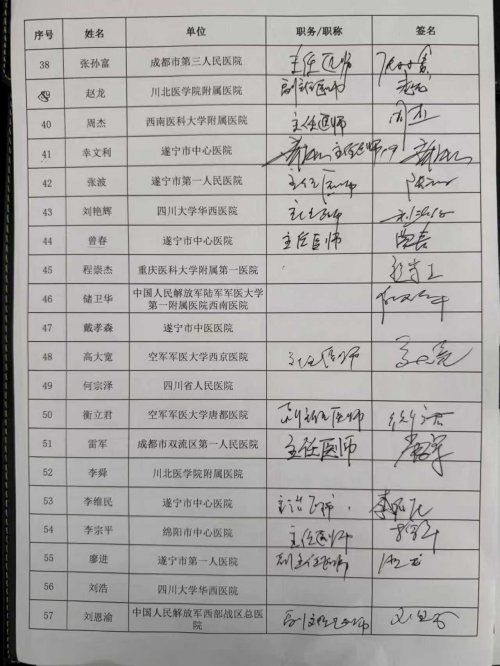 序号 姓名 单位 职务/职称 签名
38 张孙富 成都市第三人民医院 主任医师
39 赵龙 川北医学院附属医院 副主任医师
40 周杰 西南医科大学附属医院 主任医师 周杰
41 幸文利 遂宁市中心医院 主任医师
42 张波 遂宁市第一人民医院 主任医师
43 刘艳辉 四川大学华西医院
44 曾春 遂宁市中心医院 主任医师
45 程崇杰 重庆医科大学附属第一医院
46 储卫华 中国人民解放军陆军军医大学
第一附属医院西南医院
47 戴孝森 遂宁市中医医院
48 高大宽 空军军医大学西京医院 主任医师
49 何宗泽 四川省人民医院
50 衡立君 空军军医大学唐都医院 副主任医师
51 雷军 成都市双流区第一人民医院 主任医师 雷军
52 李舜 川北医学院附属医院
53 李维民 遂宁市中心医院 主治医师 李维民
54 李宗平 绵阳市中心医院 主任医师
55 廖进 遂宁市第一人民医院 副主任医师
56 刘浩 四川大学华西医院
57 刘恩渝 中国人民解放军西部战区总医
院 副主任医师